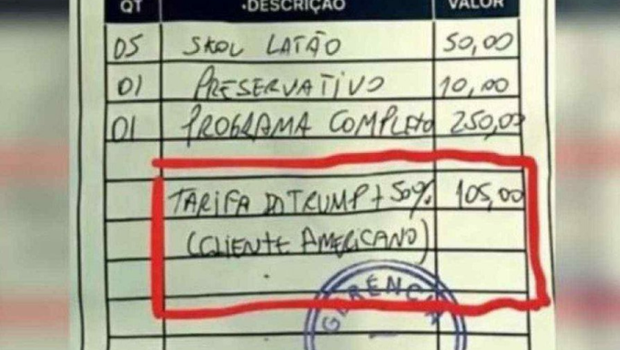 QT DESCRIÇÃO VALOR
05 SKOL LATÃO 50,00
01 PRESERVATIVO 10,00
01 PROGRAMA COMPLETO 250,00
TARIFA DO TRUMP + 50% 105,00
(CLIENTE AMERICANO)
GERÊNCIA